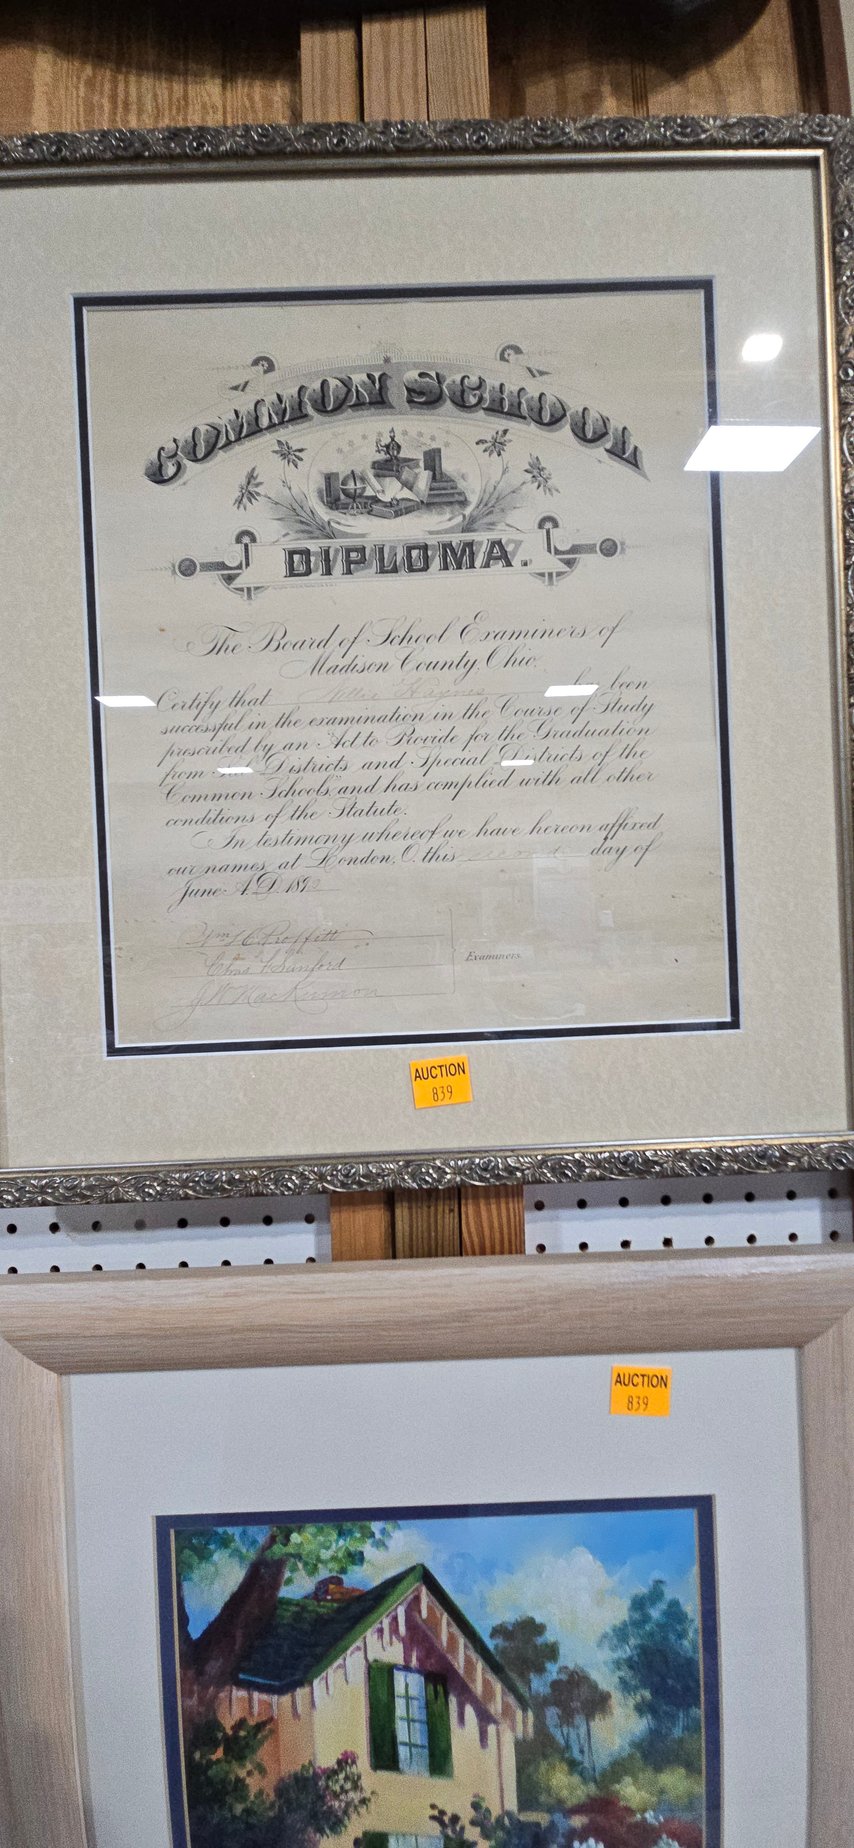 COMMON SCHOOL
DIPLOMA.
The Board of School Examiners of
Madison County, Ohio.
Certify that Nellie Haynes has been
successful in the examination in the Course of Study
prescribed by an "Act to Provide for the Graduation
from Districts and Special Districts of the
Common Schools," and has complied with all other
conditions of the Statute.
In testimony whereof we have hereon affixed
our names at London, O. this second day of
June A.D. 189
Wm H C Proffitt
Chas F Sanford
Examiners.
J W MacKinnon
AUCTION
839
AUCTION
839